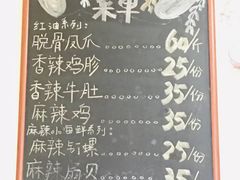 菜单
红油系列:
脱骨凤爪 60/斤
香辣鸡胗 25/份
香辣牛肚 35/份
麻辣鸡 35/份
麻辣小海鲜系列:
麻辣钉螺 25/份
麻辣扇贝 35/份